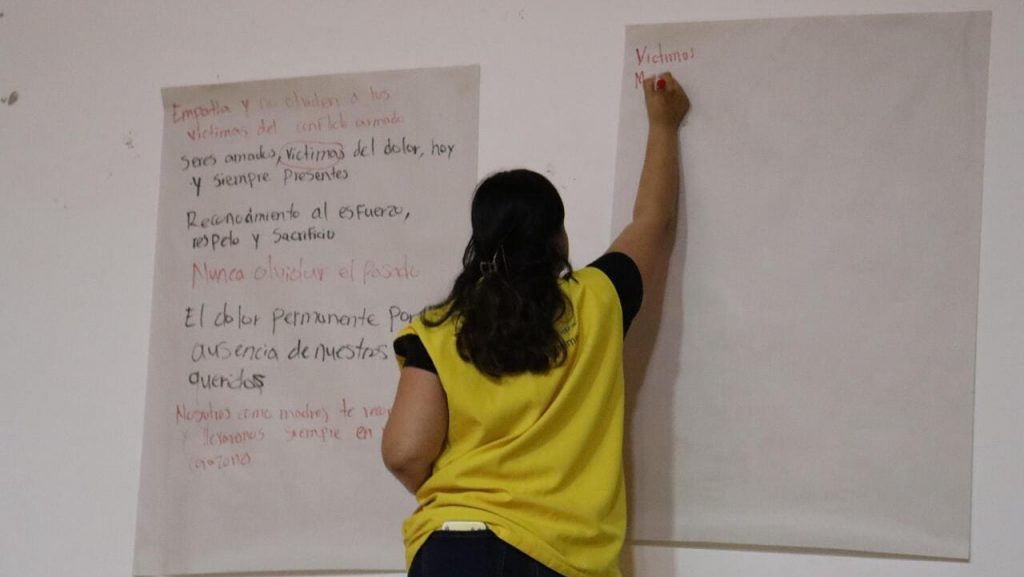 Empatia y no olviden a los
victimas del conflicto armado
seres amados, victimas del dolor, hoy
y siempre presentes
Reconocimiento al esfuerzo,
respeto y Sacrificio
Nunca olvidar el pasado
El dolor permanente por
ausencia de nuestros
queridos
Nosotros como madres te
y llevaremos siempre en
corazones
Victimas
M